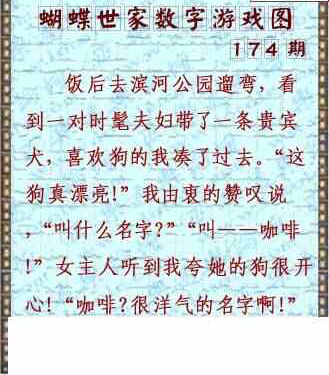 蝴蝶世家数字游戏图
174期
饭后去滨河公园遛弯，看
到一对时髦夫妇带了一条贵宾
犬，喜欢狗的我凑了过去。“这
狗真漂亮!”我由衷的赞叹说
，“叫什么名字?”“叫——咖啡
!”女主人听到我夸她的狗很开
心!“咖啡?很洋气的名字啊!”